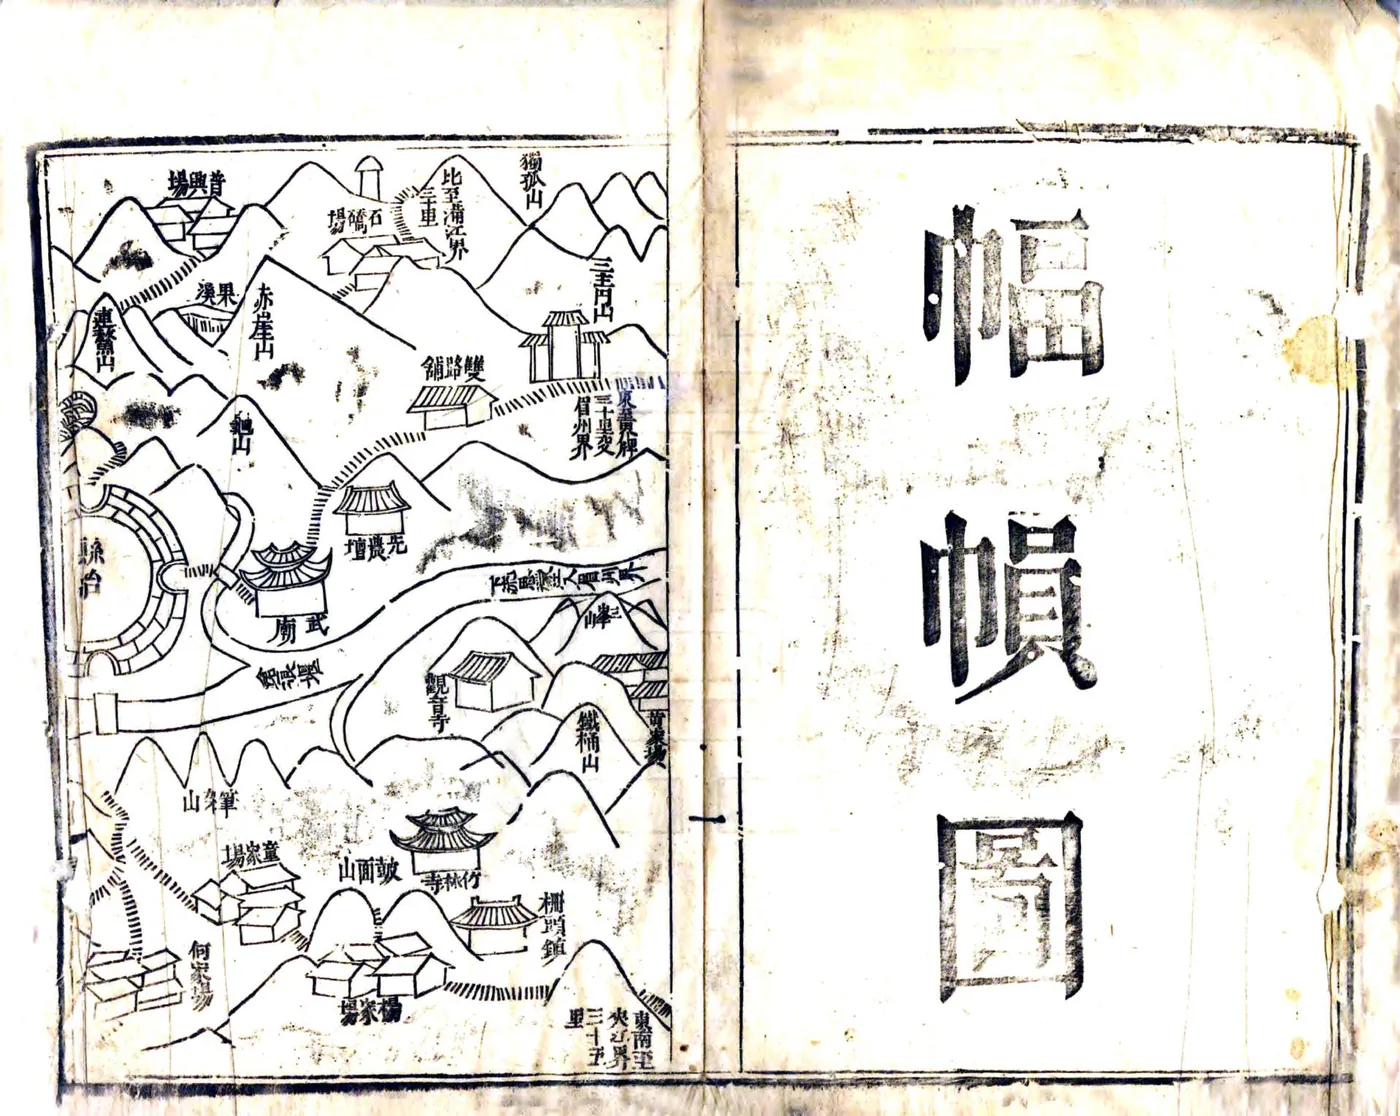 幅
幀
圖
獨孤山
北至蒲江界
三十里
石橋場
普興場
三至門山
赤崖山
果溪
連鰲山
雙路鋪
東至
三十里交
眉州界
龜山
先農壇
武廟
縣治
三峯山
觀音寺
鐵桶山
筆架山
童家場
皷面山
竹林寺
柵頭鎮
何家場
楊家場
東南至
夾江界
三十五
里